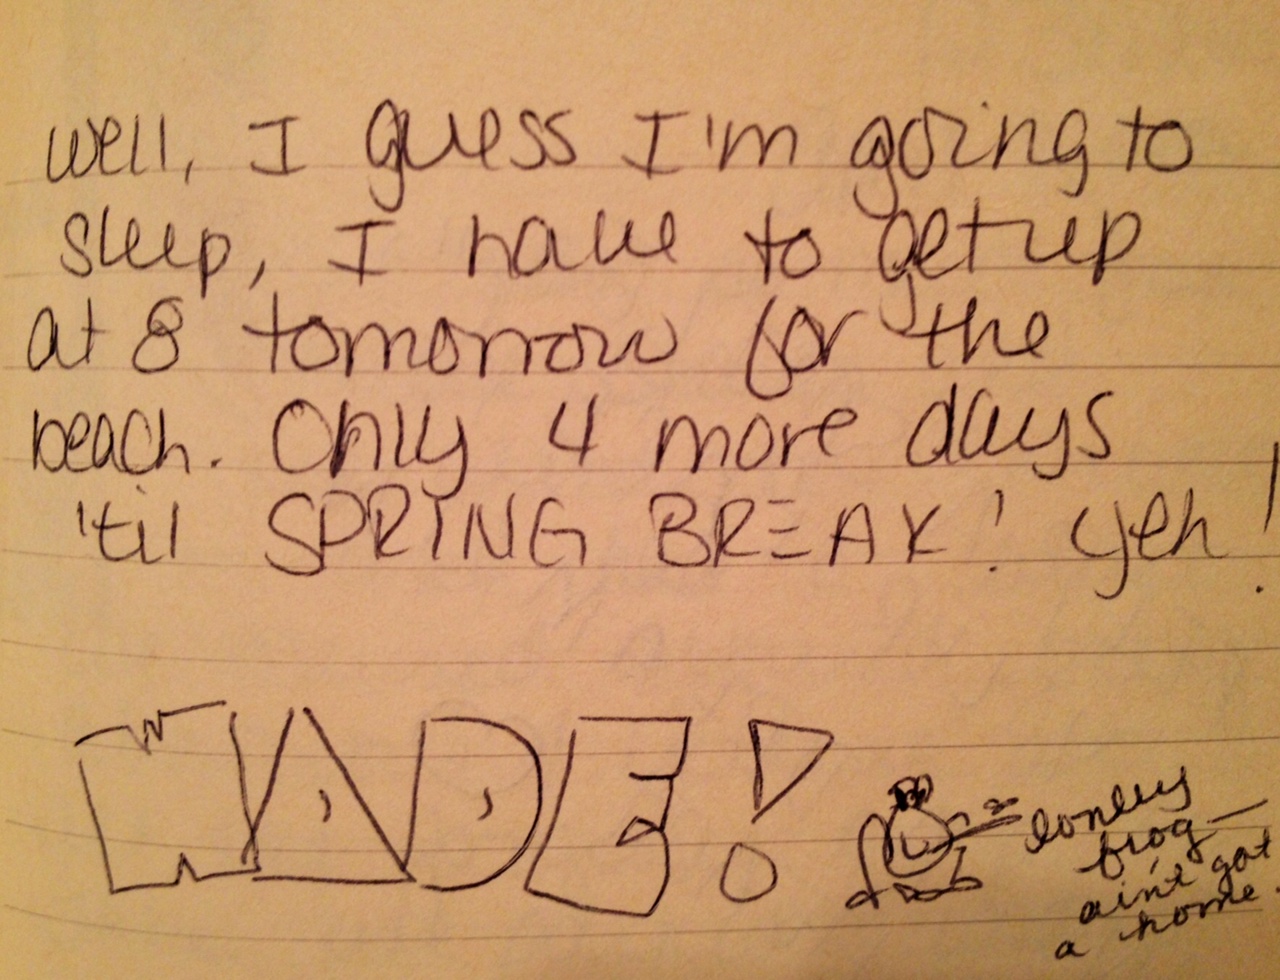 well, I guess I'm going to
sleep, I have to get up
at 8 tomorrow for the
beach. Only 4 more days
'til SPRING BREAK! yeh!
WADE!
lonely
frog—
ain't got
a home.